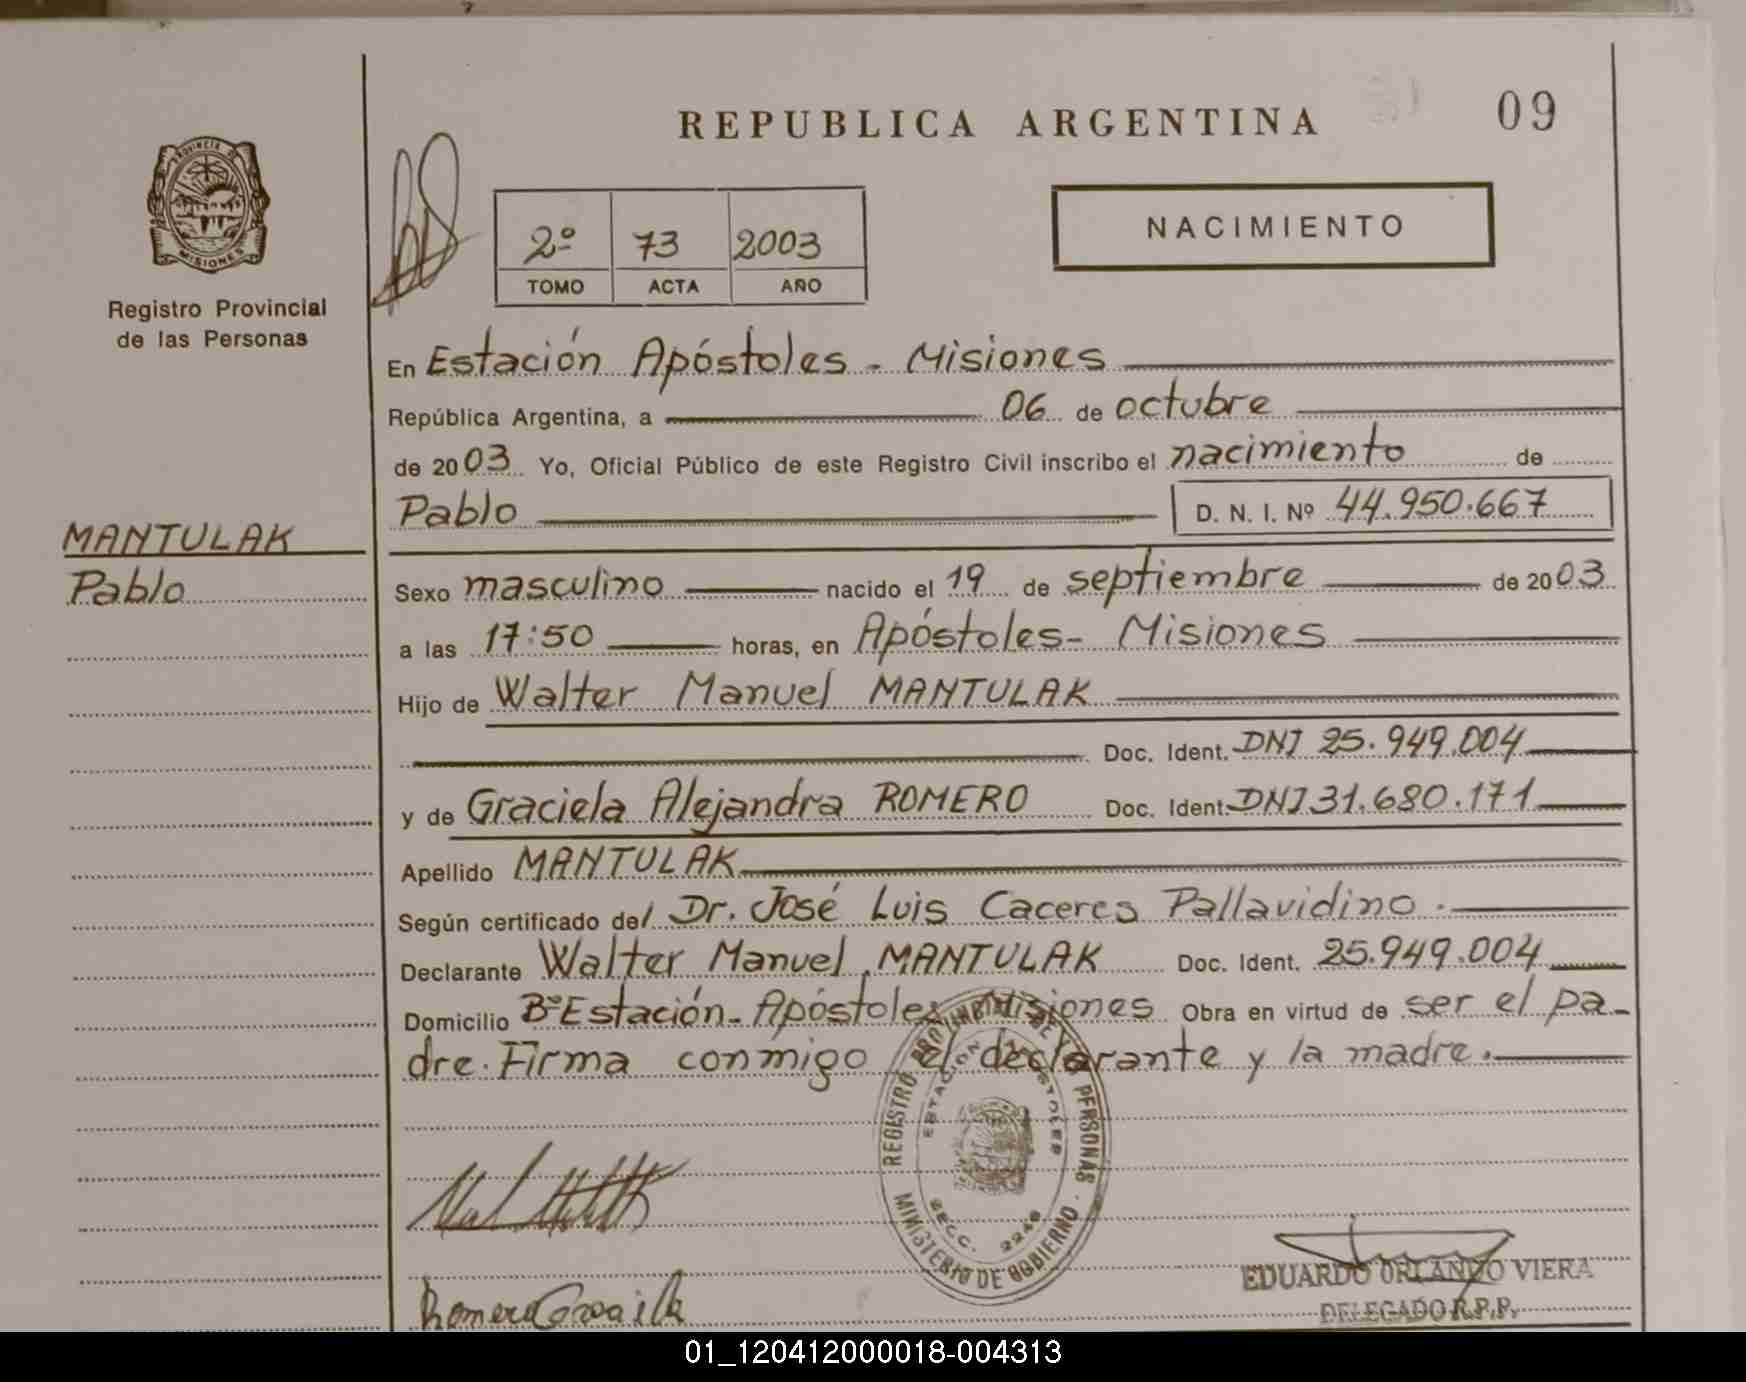 REPUBLICA ARGENTINA
09
PROVINCIA DE
MISIONES
Registro Provincial
de las Personas
2º 73 2003
TOMO ACTA AÑO
NACIMIENTO
En Estación Apóstoles - Misiones
República Argentina, a 06 de octubre
de 2003 Yo, Oficial Público de este Registro Civil inscribo el nacimiento de
Pablo D. N. I. Nº 44.950.667
MANTULAK
Pablo
Sexo masculino nacido el 19 de septiembre de 2003
a las 17:50 horas, en Apóstoles - Misiones
Hijo de Walter Manuel MANTULAK
Doc. Ident. DNI 25.949.004
y de Graciela Alejandra ROMERO Doc. Ident. DNI 31.680.171
Apellido MANTULAK
Según certificado del Dr. José Luis Caceres Pallavidino.
Declarante Walter Manuel MANTULAK Doc. Ident. 25.949.004
Domicilio Bº Estación - Apóstoles Misiones Obra en virtud de ser el pa-
dre. Firma conmigo el declarante y la madre.
REGISTRO PROVINCIAL DE PERSONAS
ESTACION APOSTOLES
SECC. 2248
MINISTERIO DE GOBIERNO
EDUARDO ORLANDO VIERA
DELEGADO R.P.P.
Romero Graciela
01_120412000018-004313